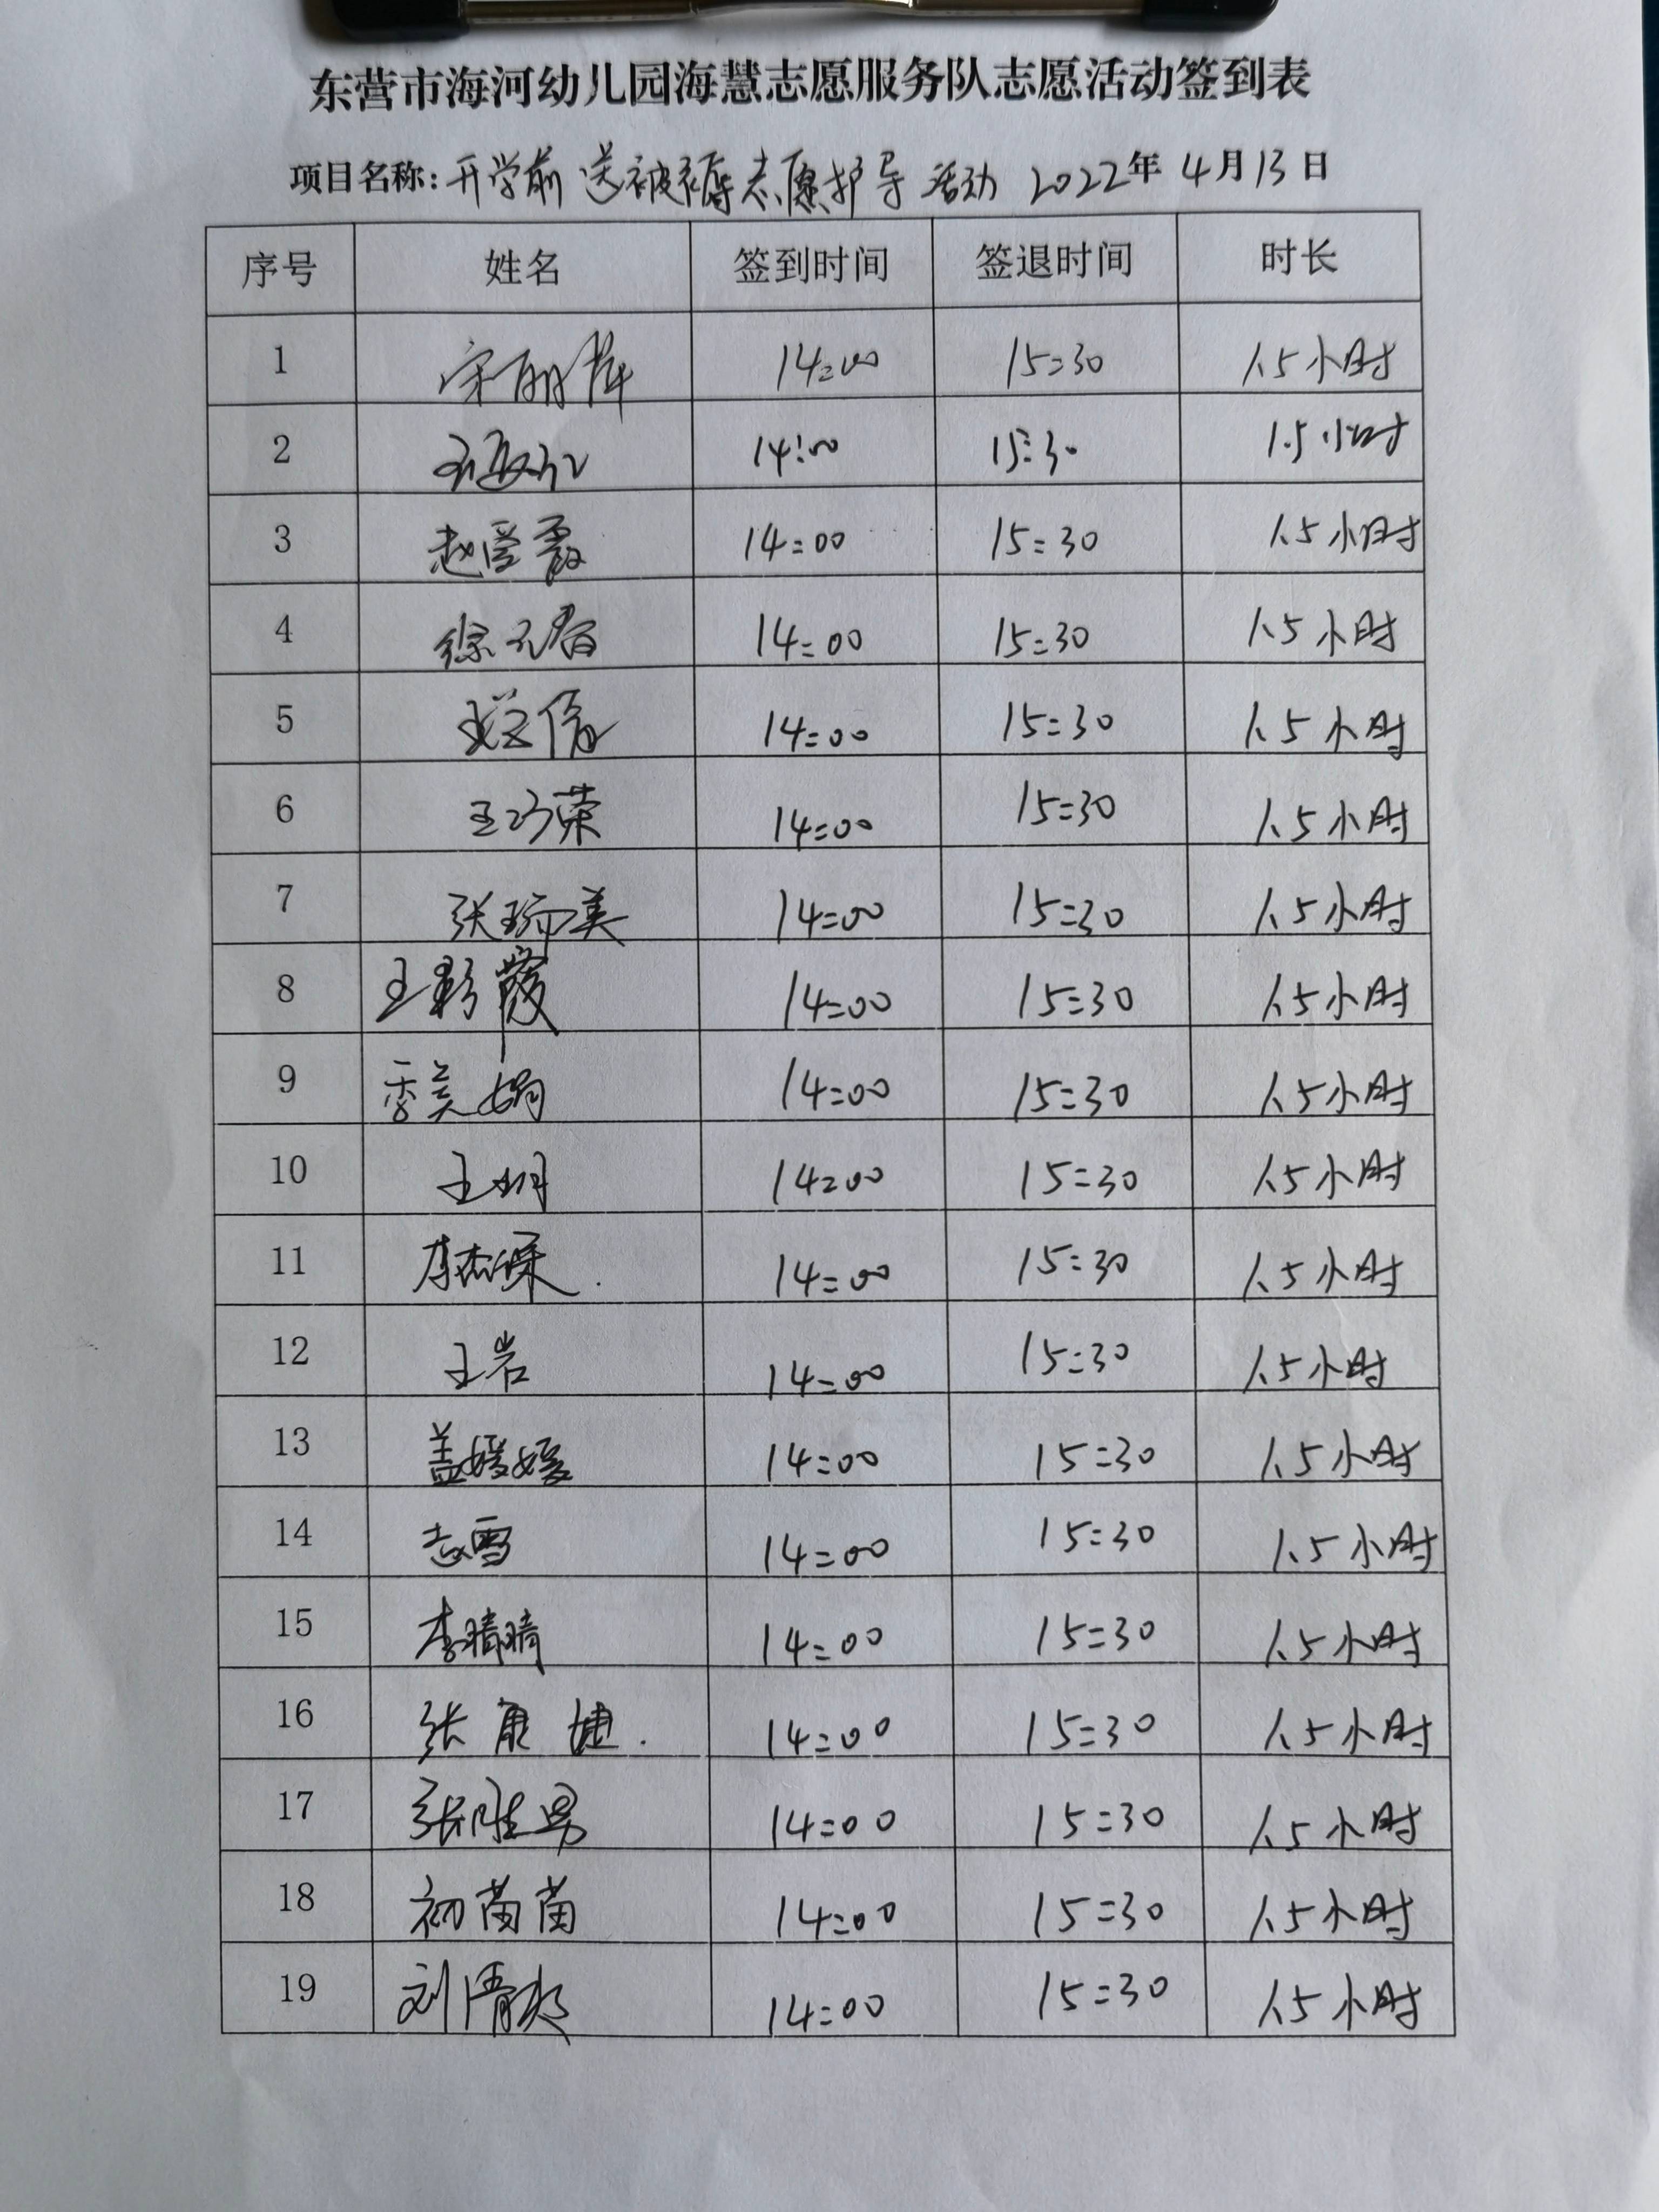 东营市海河幼儿园海慧志愿服务队志愿活动签到表
项目名称：开学前送被褥志愿护导活动 2022年4月13日
序号 姓名 签到时间 签退时间 时长
1 宋丽萍 14:00 15:30 1.5小时
2 14:00 15:30 1.5小时
3 赵爱霞 14:00 15:30 1.5小时
4 徐元春 14:00 15:30 1.5小时
5 14:00 15:30 1.5小时
6 王巧荣 14:00 15:30 1.5小时
7 张瑞美 14:00 15:30 1.5小时
8 王彩霞 14:00 15:30 1.5小时
9 季美娟 14:00 15:30 1.5小时
10 王 14:00 15:30 1.5小时
11 李杰 14:00 15:30 1.5小时
12 王岩 14:00 15:30 1.5小时
13 盖媛媛 14:00 15:30 1.5小时
14 志雪 14:00 15:30 1.5小时
15 李晴晴 14:00 15:30 1.5小时
16 张康婕 14:00 15:30 1.5小时
17 张胜男 14:00 15:30 1.5小时
18 初苗苗 14:00 15:30 1.5小时
19 刘清 14:00 15:30 1.5小时